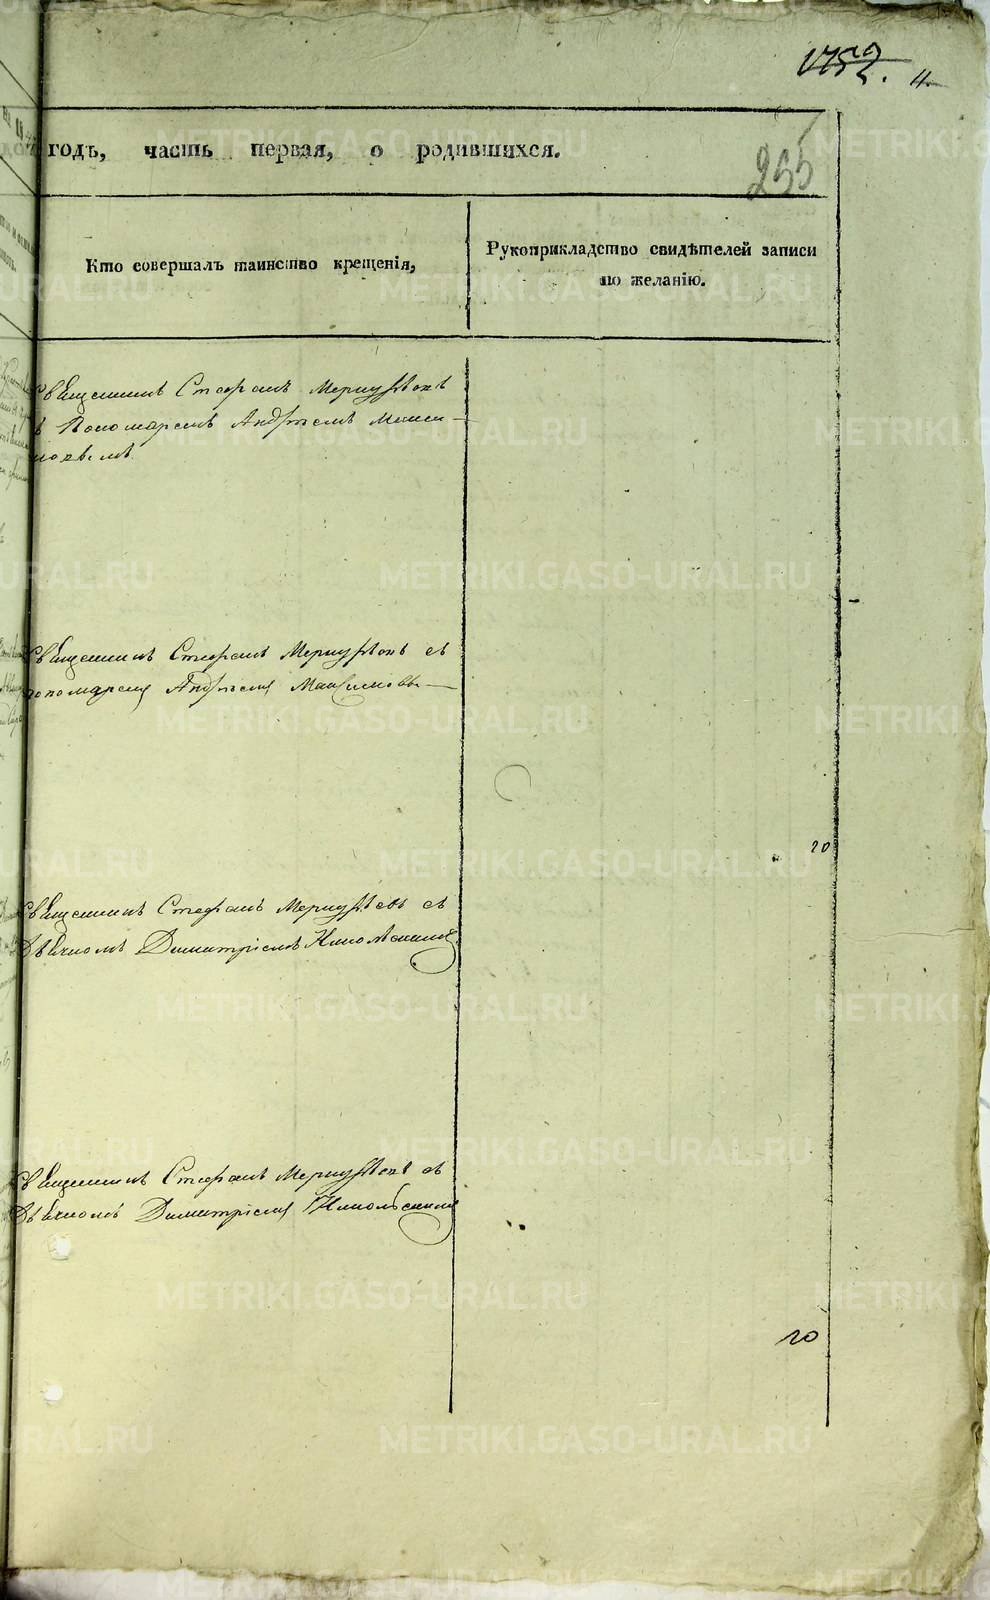 11.
годъ, часть первая, о родившихся.
255
Кто совершалъ таинство крещенія,
Рукоприкладство свидѣтелей записи
по желанію.
Священникъ Стефанъ Меркурьевъ
Пономаремъ Андреемъ
Священникъ Стефанъ Меркурьевъ съ
пономаремъ Андреемъ
20
Священникъ Стефанъ Меркурьевъ съ
Дьячкомъ Димитріемъ Никольскимъ
Священникъ Стефанъ Меркурьевъ съ
Дьячкомъ Димитріемъ Никольскимъ
20
METRIKI.GASO-URAL.RU